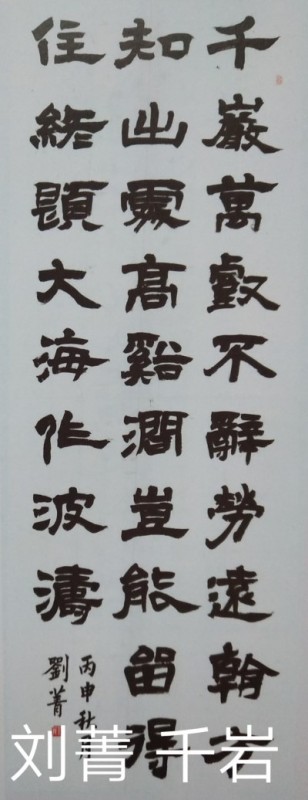 千巖萬壑不辭勞遠看方
知出處高谿澗豈能留得
住終歸大海作波濤
丙申秋月
劉菁
刘菁 千岩